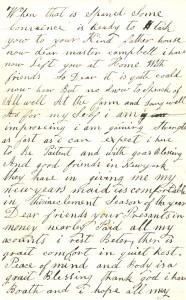 When that is Spared Some
Convenience is Ready to Wash
you to your Kind Father house
now dear master campbell i have
now Left you at Home With
friends So Dear it is quite could
now hear But no Snow to Speak of
All well At the farm and Sany well
As for my Self i am
improveing i am gaining Strength
as fast as i can expect i have
to Be Patient and with good
And good friends in Newyork
they have in giveing me my
new years maid is comfortable
in this inclement Season of the year
Dear friends your Presants in
money nearly Paid all my
acounts i rest Better then is
great comfort in quiet host
Peace of mind and body is a
great Blessing thank god i have
Boath and i hope all my